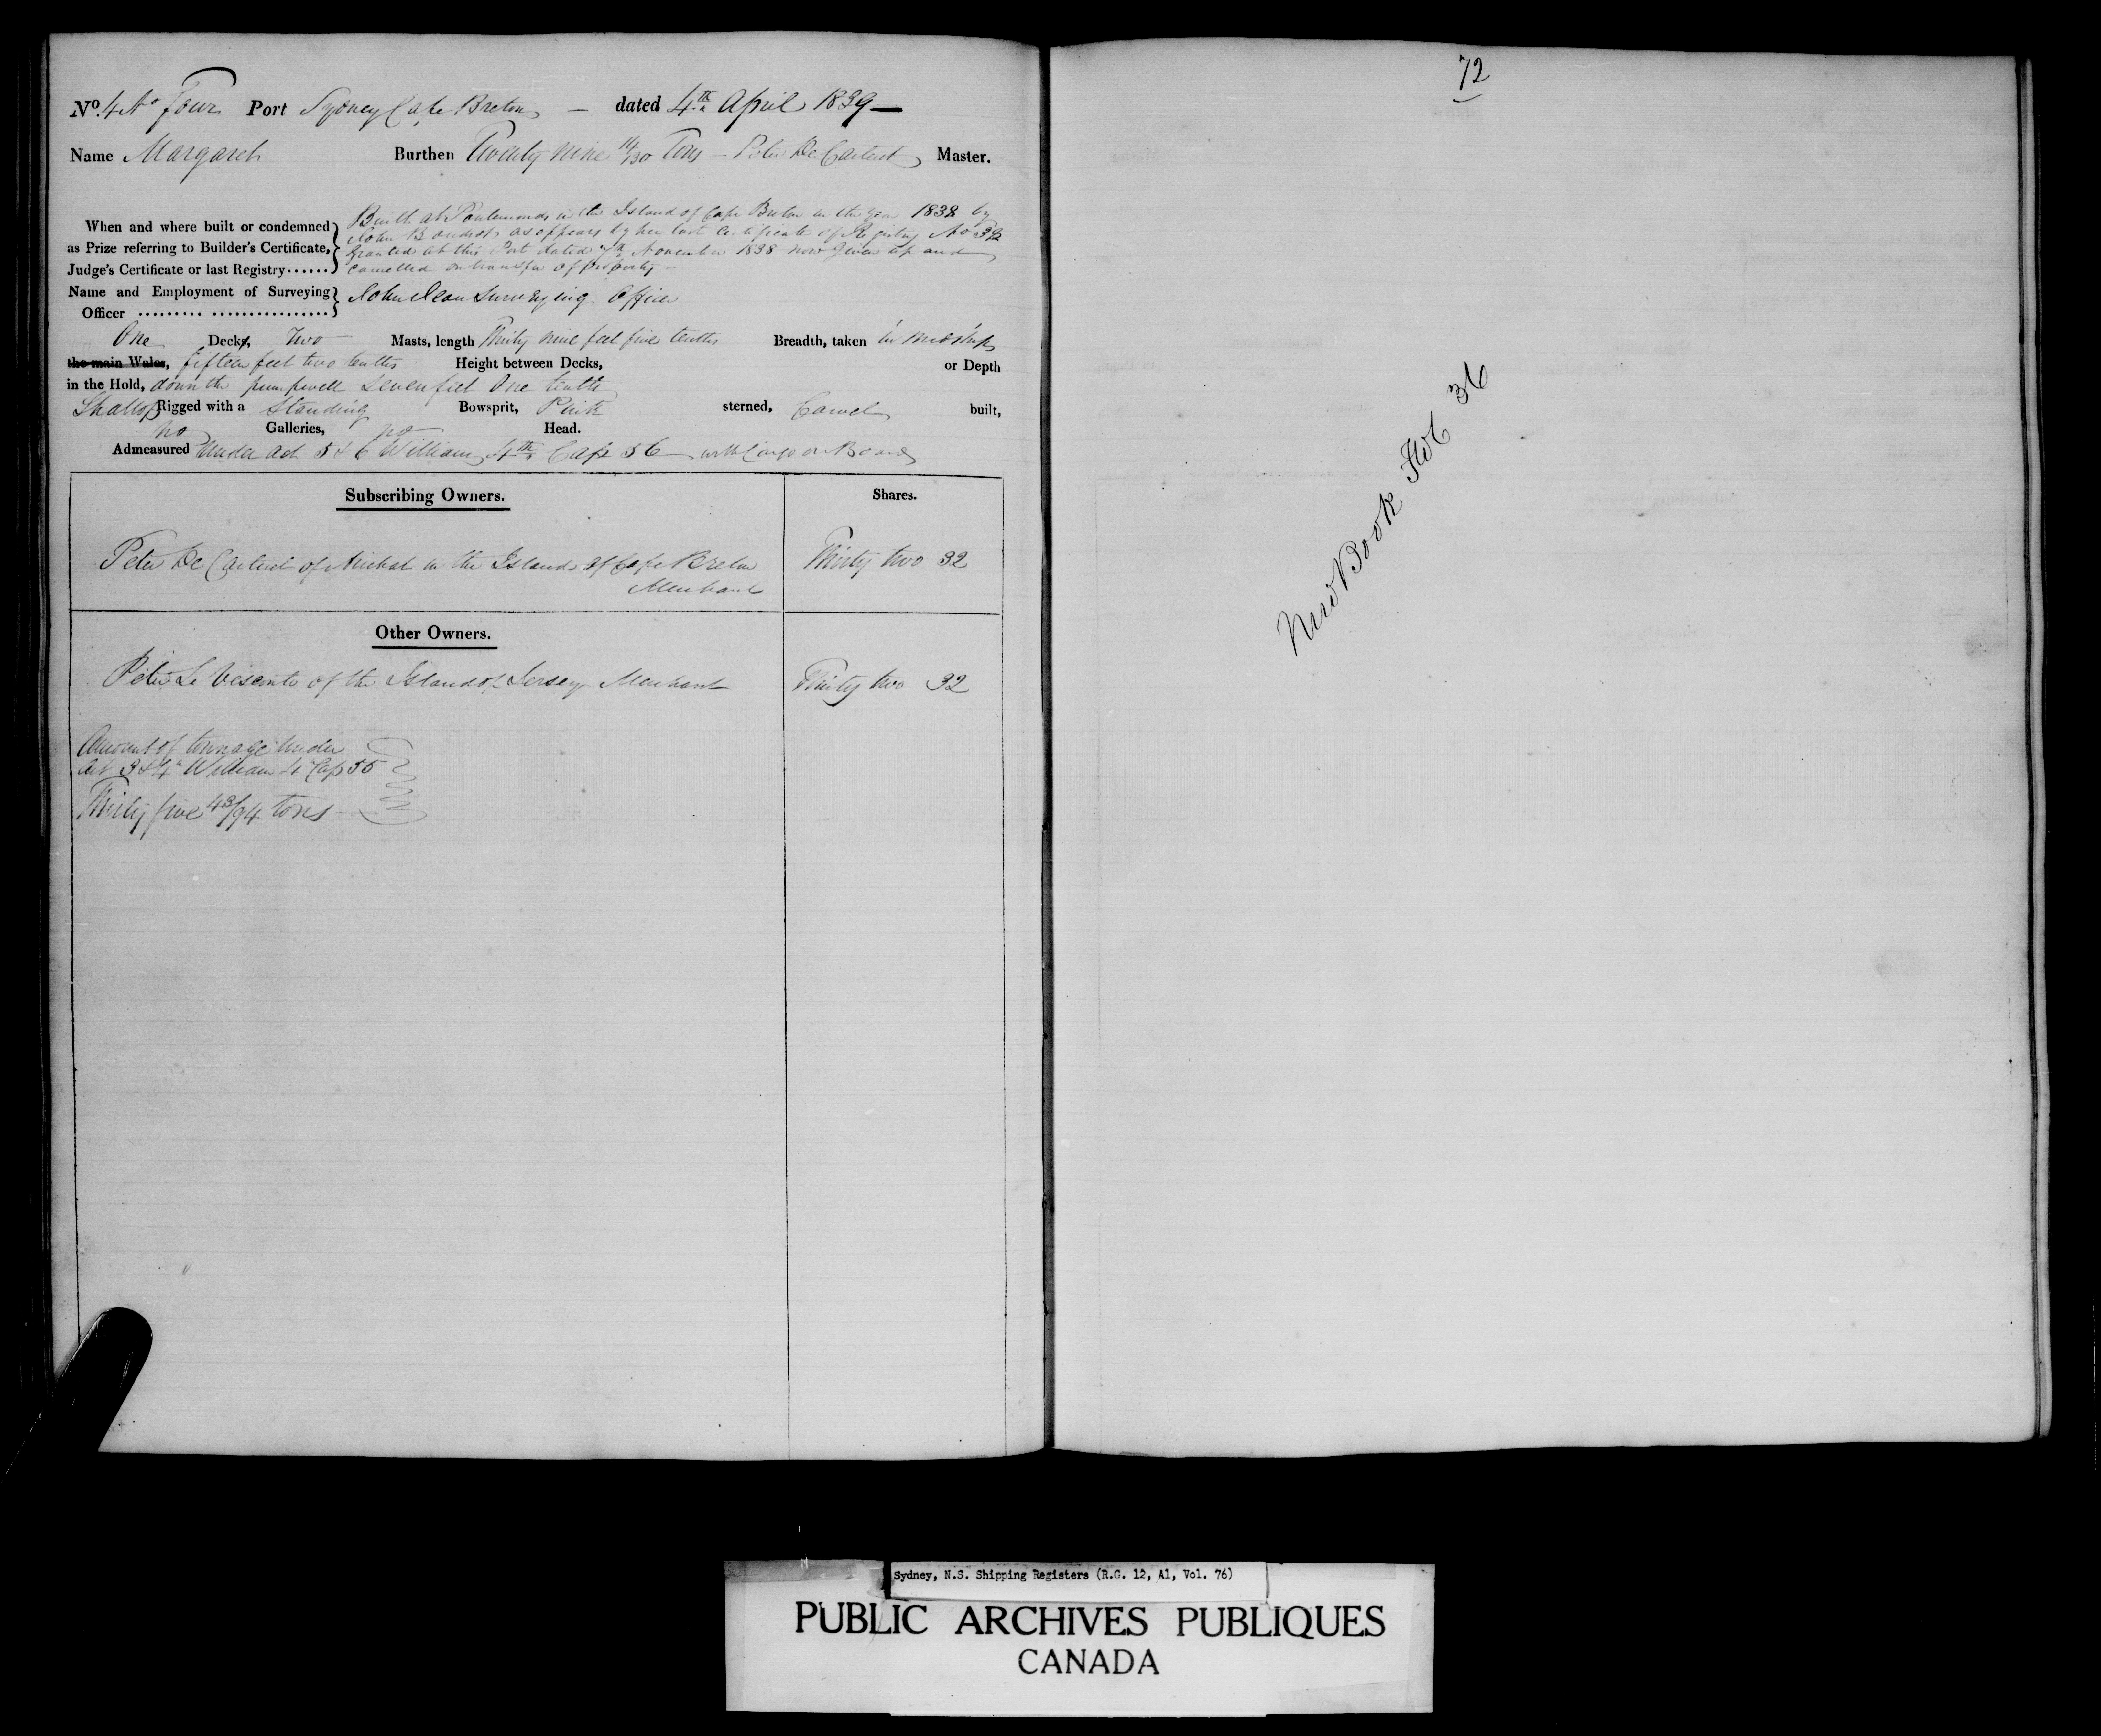 No. 4 No Four Port Sydney Cape Breton — dated 4th April 1839 —
Name Margaret Burthen Twenty nine 11/30 Tons — Peter De Carteret Master.
When and where built or condemned as Prize referring to Builder's Certificate, Judge's Certificate or last Registry......
Built at in the Island of Cape Breton in the Year 1838 by
John as appears by her last Certificate of Registry No 32
Granted at this Port dated 7th November 1838 now Given up and
Cancelled on transfer of property —
Name and Employment of Surveying Officer ......... ................
John Surveying Officer
One Decks, Two Masts, length Thirty nine feet five tenths Breadth, taken in midships
the main Wales, fifteen feet two tenths Height between Decks, or Depth
in the Hold, down the pumpwell Seven feet One tenth
Shallop Rigged with a Standing Bowsprit, Pink sterned, Carvel built,
no Galleries, no Head.
Admeasured Under Act 5 & 6 William 4th Cap 56 with Cargo on Board
Subscribing Owners. Shares.
Peter De Carteret of Arichat in the Island of Cape Breton Thirty two 32
Merchant
Other Owners.
Peter Le Visconte of the Island of Jersey Merchant Thirty two 32
Amount of tonnage Under
Act 3 & 4 William 4 Cap 55
Thirty five 43/94 tons
72
New Book Fol 36
Sydney, N.S. Shipping Registers (R.G. 12, A1, Vol. 76)
PUBLIC ARCHIVES PUBLIQUES
CANADA